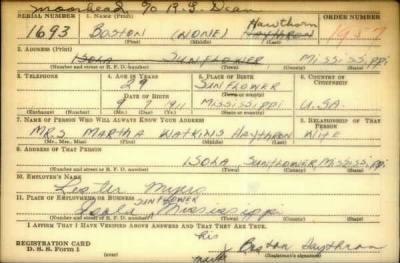 Moorhead c/o R.G. Dean
SERIAL NUMBER 1. NAME (Print) Hawthorn ORDER NUMBER
1693 BOSTON (NONE) HAYTHRON 1957
(First) (Middle) (Last)
2. ADDRESS (Print)
ISOLA SUNFLOWER MISSISSIPPI
(Number and street or R. F. D. number) (Town) (County) (State)
3. TELEPHONE 4. AGE IN YEARS 5. PLACE OF BIRTH 6. COUNTRY OF CITIZENSHIP
29 SUNFLOWER
DATE OF BIRTH (Town or county)
9 7 1911 MISSISSIPPI U.S.A.
(Exchange) (Number) (Mo.) (Day) (Yr.) (State or country)
7. NAME OF PERSON WHO WILL ALWAYS KNOW YOUR ADDRESS 8. RELATIONSHIP OF THAT PERSON
MRS. MARTHA WATKINS HAYTHRON WIFE
(Mr., Mrs., Miss) (First) (Middle) (Last)
9. ADDRESS OF THAT PERSON
ISOLA SUNFLOWER MISSISSIPPI
(Number and street or R. F. D. number) (Town) (County) (State)
10. EMPLOYER'S NAME
Lester Myers
11. PLACE OF EMPLOYMENT OR BUSINESS SUNFLOWER
Isola Mississippi
(Number and street or R. F. D. number) (Town) (County) (State)
I AFFIRM THAT I HAVE VERIFIED ABOVE ANSWERS AND THAT THEY ARE TRUE.
his
REGISTRATION CARD x Boston Haythron
D. S. S. Form 1 mark (Registrant's signature)